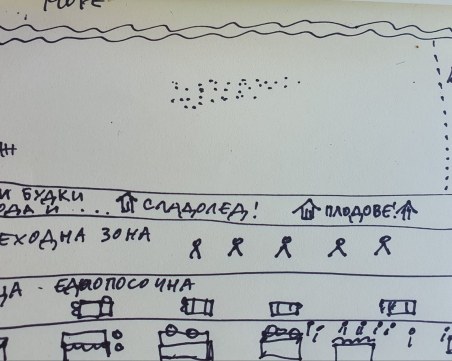 МОРЕ
И БУДКИ
ОДА И .... СЛАДОЛЕД! ПЛОДОВЕ!
ЕХОДНА ЗОНА
ЦА - ЕДНОПОСОЧНА